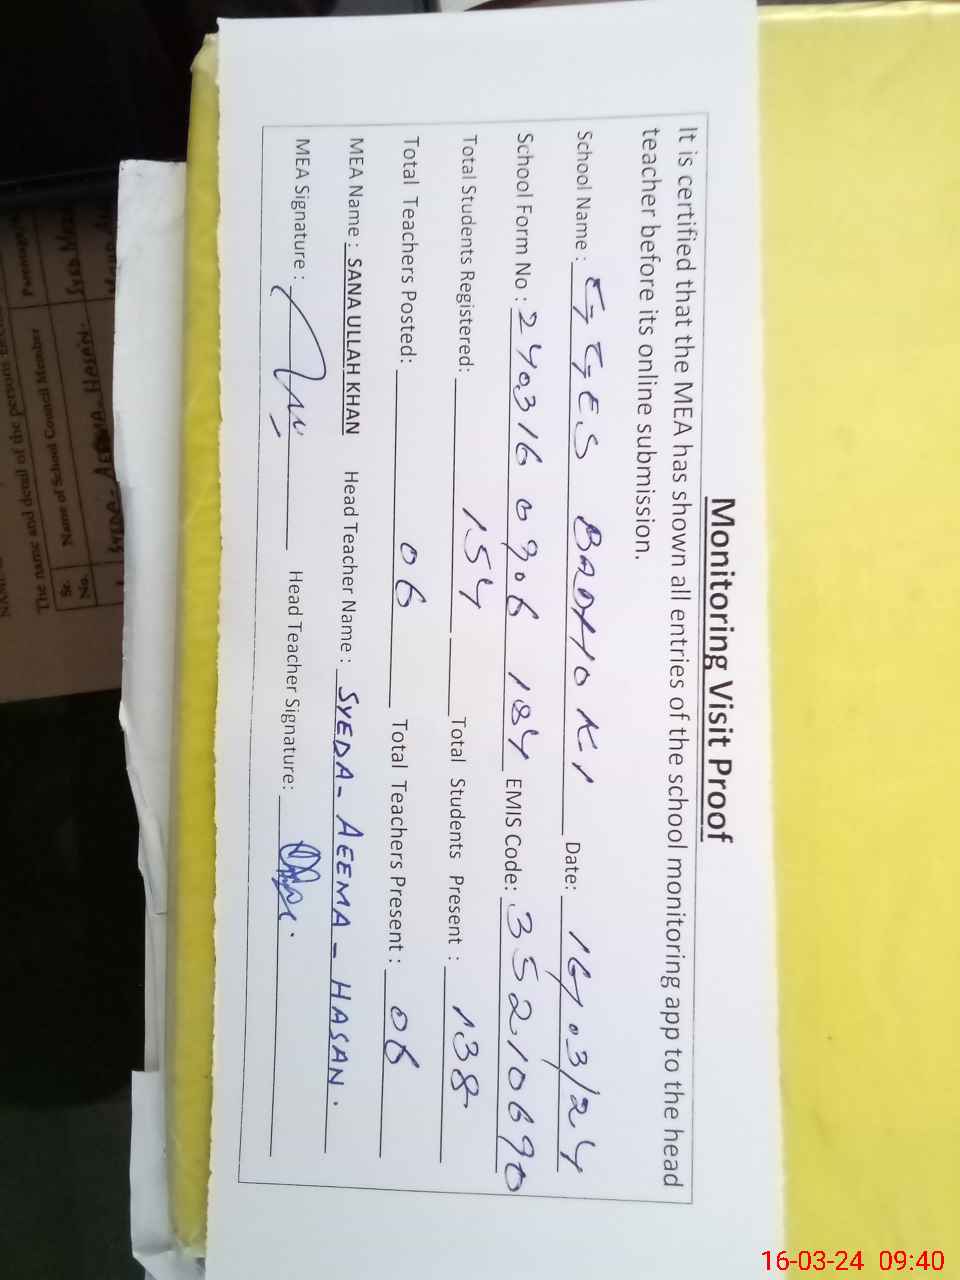 Monitoring Visit Proof
It is certified that the MEA has shown all entries of the school monitoring app to the head
teacher before its online submission.
School Name : GGES BADHOKI Date: 16/03/24
School Form No : 240316 0906 184 EMIS Code: 35210690
Total Students Registered: 154 Total Students Present : 138
Total Teachers Posted: 06 Total Teachers Present : 06
MEA Name : SANA ULLAH KHAN Head Teacher Name : SYEDA - AEEMA - HASAN.
MEA Signature : Head Teacher Signature:
The name and detail of the persons
Sr. No. Name of School Council Member
SYEDA - AEEMA - HASAN.
16-03-24 09:40